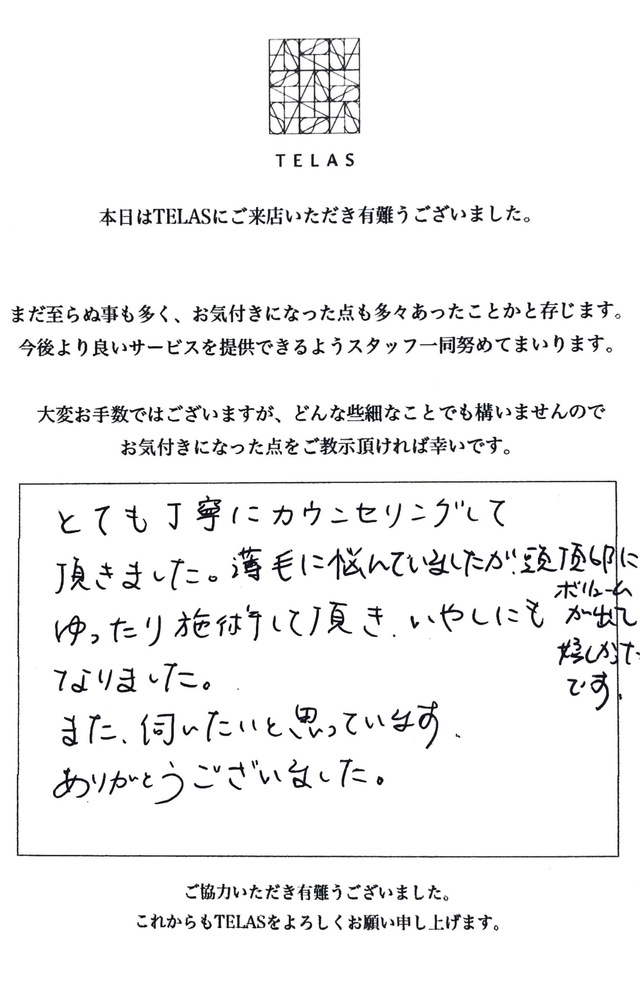 TELAS
本日はTELASにご来店いただき有難うございました。
まだ至らぬ事も多く、お気付きになった点も多々あったことかと存じます。
今後より良いサービスを提供できるようスタッフ一同努めてまいります。
大変お手数ではございますが、どんな些細なことでも構いませんので
お気付きになった点をご教示頂ければ幸いです。
とても丁寧にカウンセリングして
頂きました。薄毛に悩んでいましたが、頭頂部に
ボリューム
が出て
嬉しかった
です。
ゆったり施術して頂き、いやしにも
なりました。
また、伺いたいと思っています。
ありがとうございました。
ご協力いただき有難うございました。
これからもTELASをよろしくお願い申し上げます。